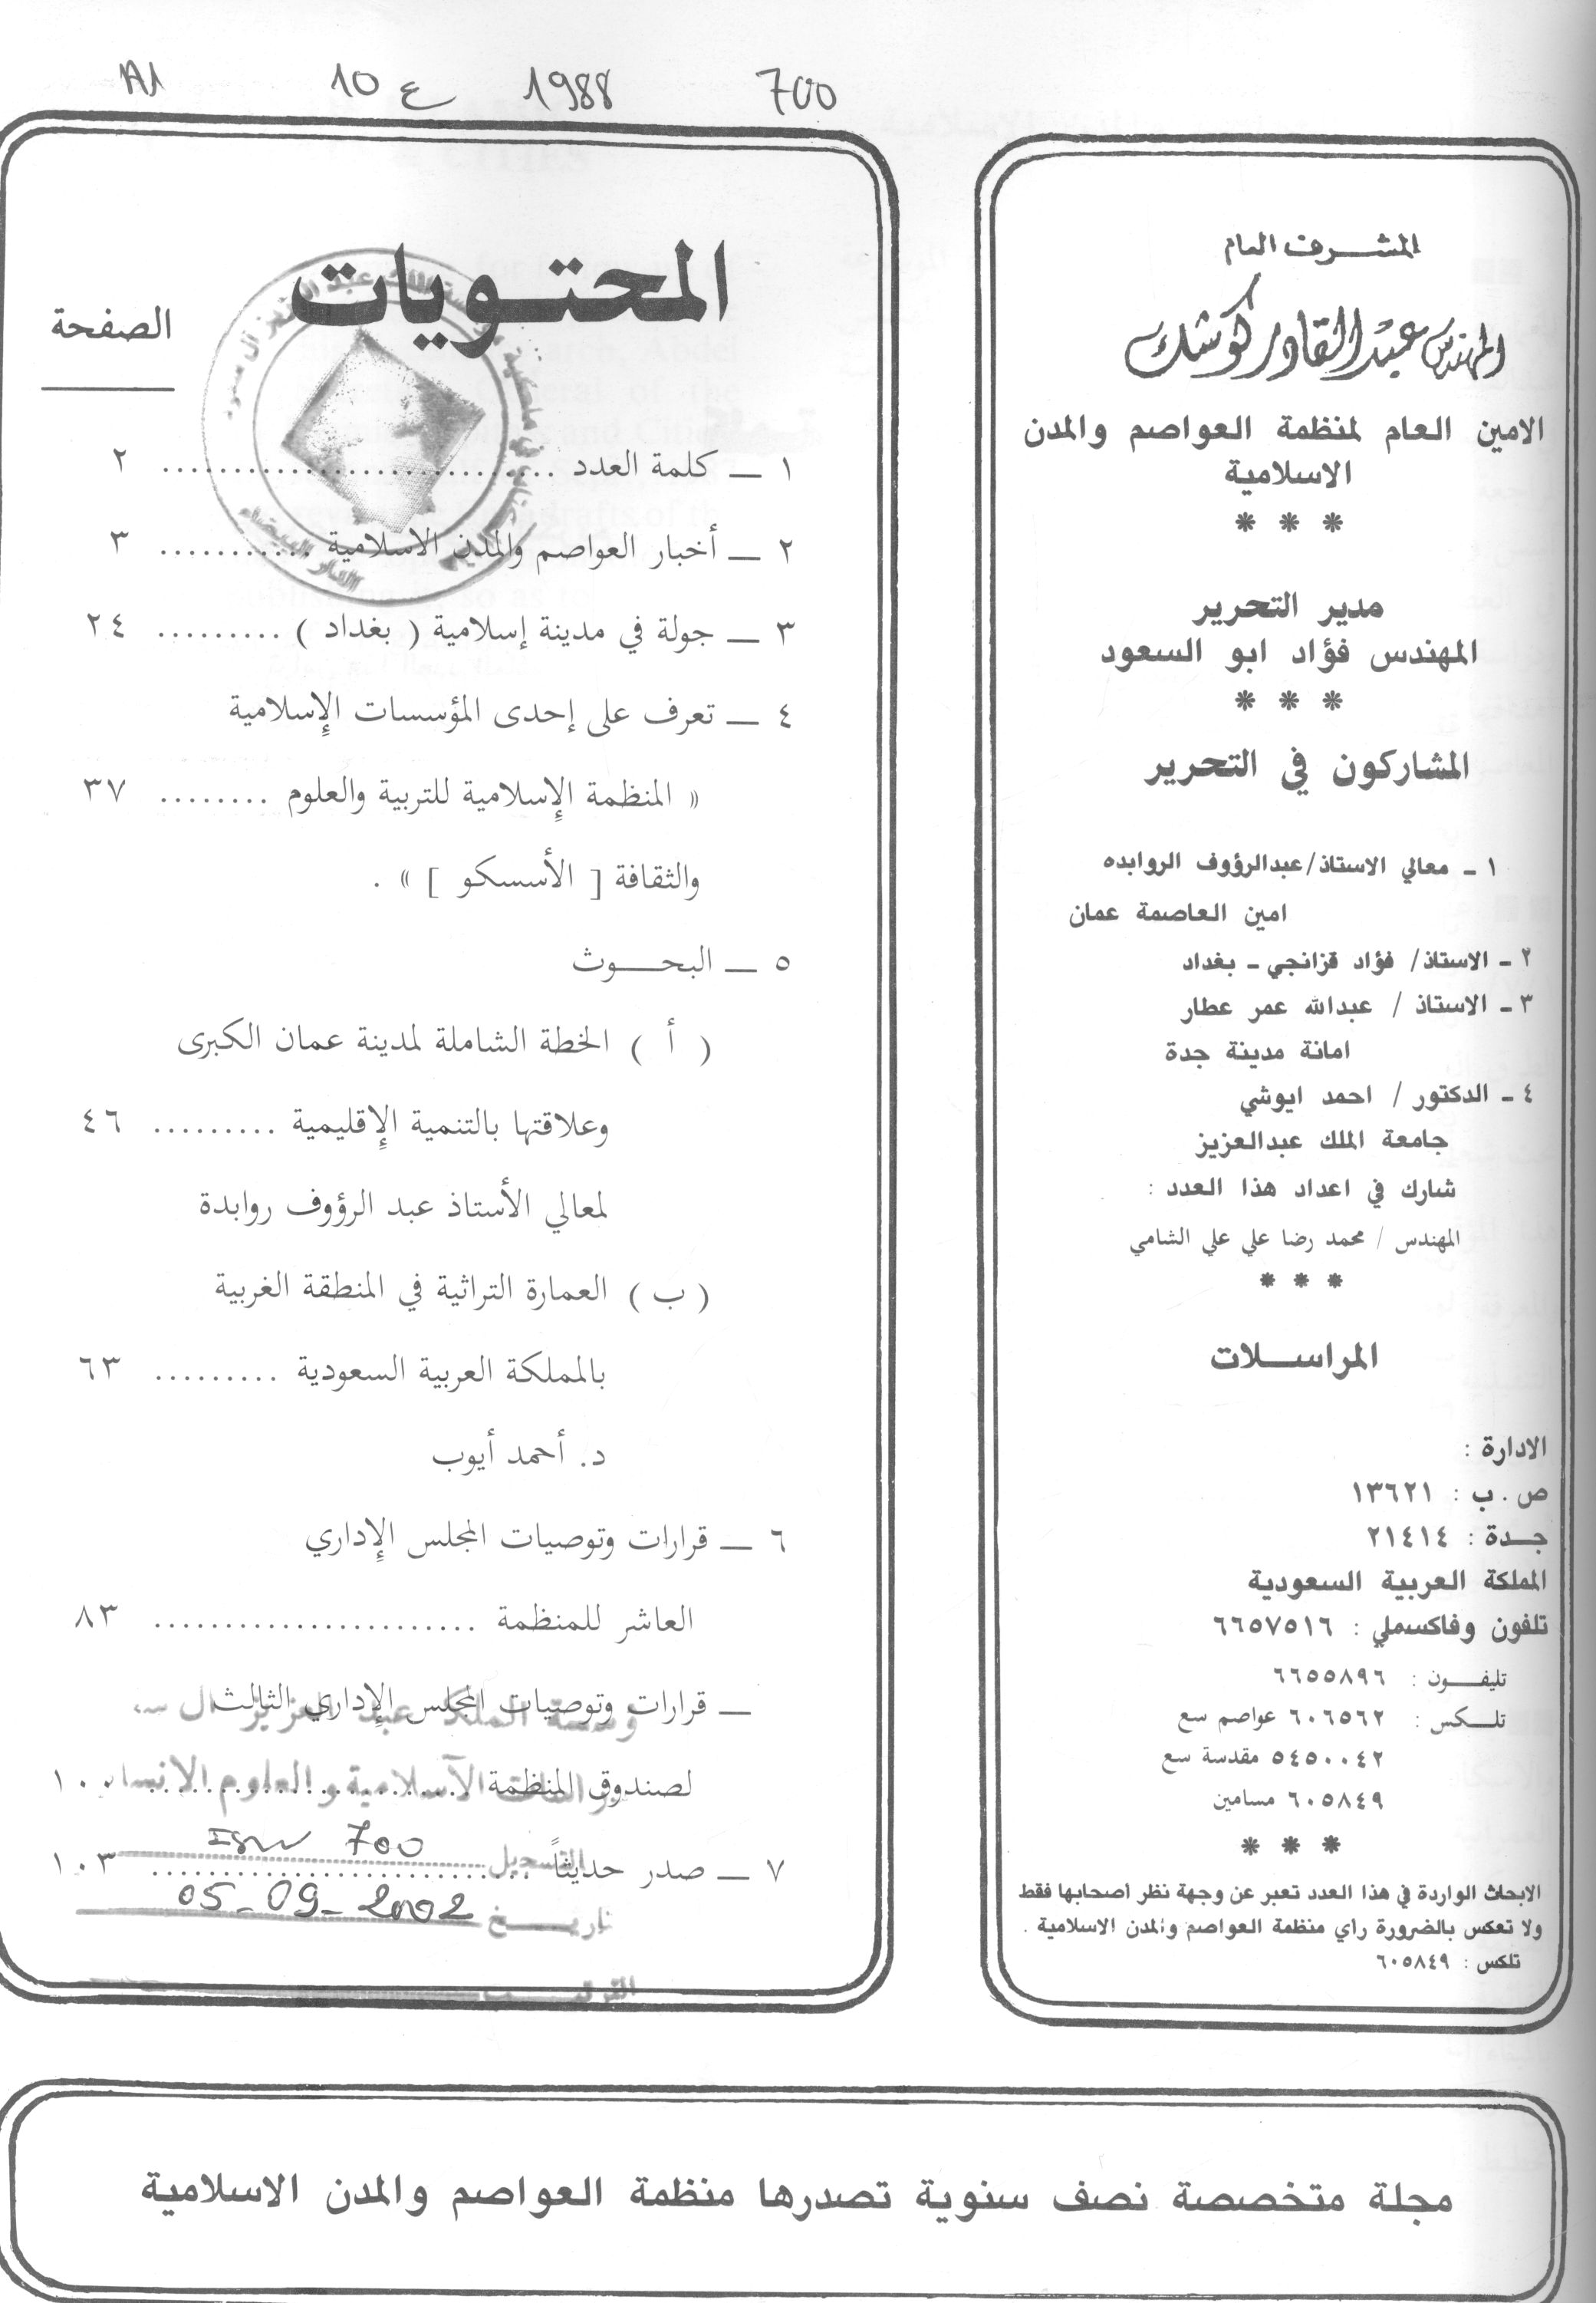 700 1988 ع 10
المشرف العام
المهندس عبد القادر كوشك
الامين العام لمنظمة العواصم والمدن
الاسلامية
* * *
مدير التحرير
المهندس فؤاد ابو السعود
* * *
المشاركون في التحرير
١ - معالي الاستاذ/عبدالرؤوف الروابده
امين العاصمة عمان
٢ - الاستاذ/ فؤاد قزانجي - بغداد
٣ - الاستاذ / عبدالله عمر عطار
امانة مدينة جدة
٤ - الدكتور / احمد ايوشي
جامعة الملك عبدالعزيز
شارك في اعداد هذا العدد :
المهندس / محمد رضا علي علي الشامي
* * *
المراسلات
الادارة :
ص . ب : ١٣٦٢١
جدة : ٢١٤١٤
المملكة العربية السعودية
تلفون وفاكسملي : ٦٦٥٧٥١٦
تليفون : ٦٦٥٥٨٩٦
تلكس : ٦٠٦٥٦٢ عواصم سع
٥٤٥٠٠٤٢ مقدسة سع
٦٠٥٨٤٩ مسامين
* * *
الابحاث الواردة في هذا العدد تعبر عن وجهة نظر أصحابها فقط
ولا تعكس بالضرورة راي منظمة العواصم والمدن الاسلامية .
تلكس : ٦٠٥٨٤٩
المحتويات
الصفحة
١ — كلمة العدد ............................ ٢
٢ — أخبار العواصم والمدن الاسلامية ........... ٣
٣ — جولة في مدينة إسلامية ( بغداد ) ......... ٢٤
٤ — تعرف على إحدى المؤسسات الإسلامية
« المنظمة الإسلامية للتربية والعلوم ........ ٣٧
والثقافة [ الأسسكو ] » .
٥ — البحوث
( أ ) الخطة الشاملة لمدينة عمان الكبرى
وعلاقتها بالتنمية الإقليمية ......... ٤٦
لمعالي الأستاذ عبد الرؤوف روابدة
( ب ) العمارة التراثية في المنطقة الغربية
بالمملكة العربية السعودية ......... ٦٣
د. أحمد أيوب
٦ — قرارات وتوصيات المجلس الإداري
العاشر للمنظمة ....................... ٨٣
— قرارات وتوصيات المجلس الإداري الثالث
لصندوق المنظمة ........................... ١٠٠
٧ — صدر حديثاً ........................... ١٠٣
التسجيل 700
تاريخ 05-09-2002
مجلة متخصصة نصف سنوية تصدرها منظمة العواصم والمدن الاسلامية